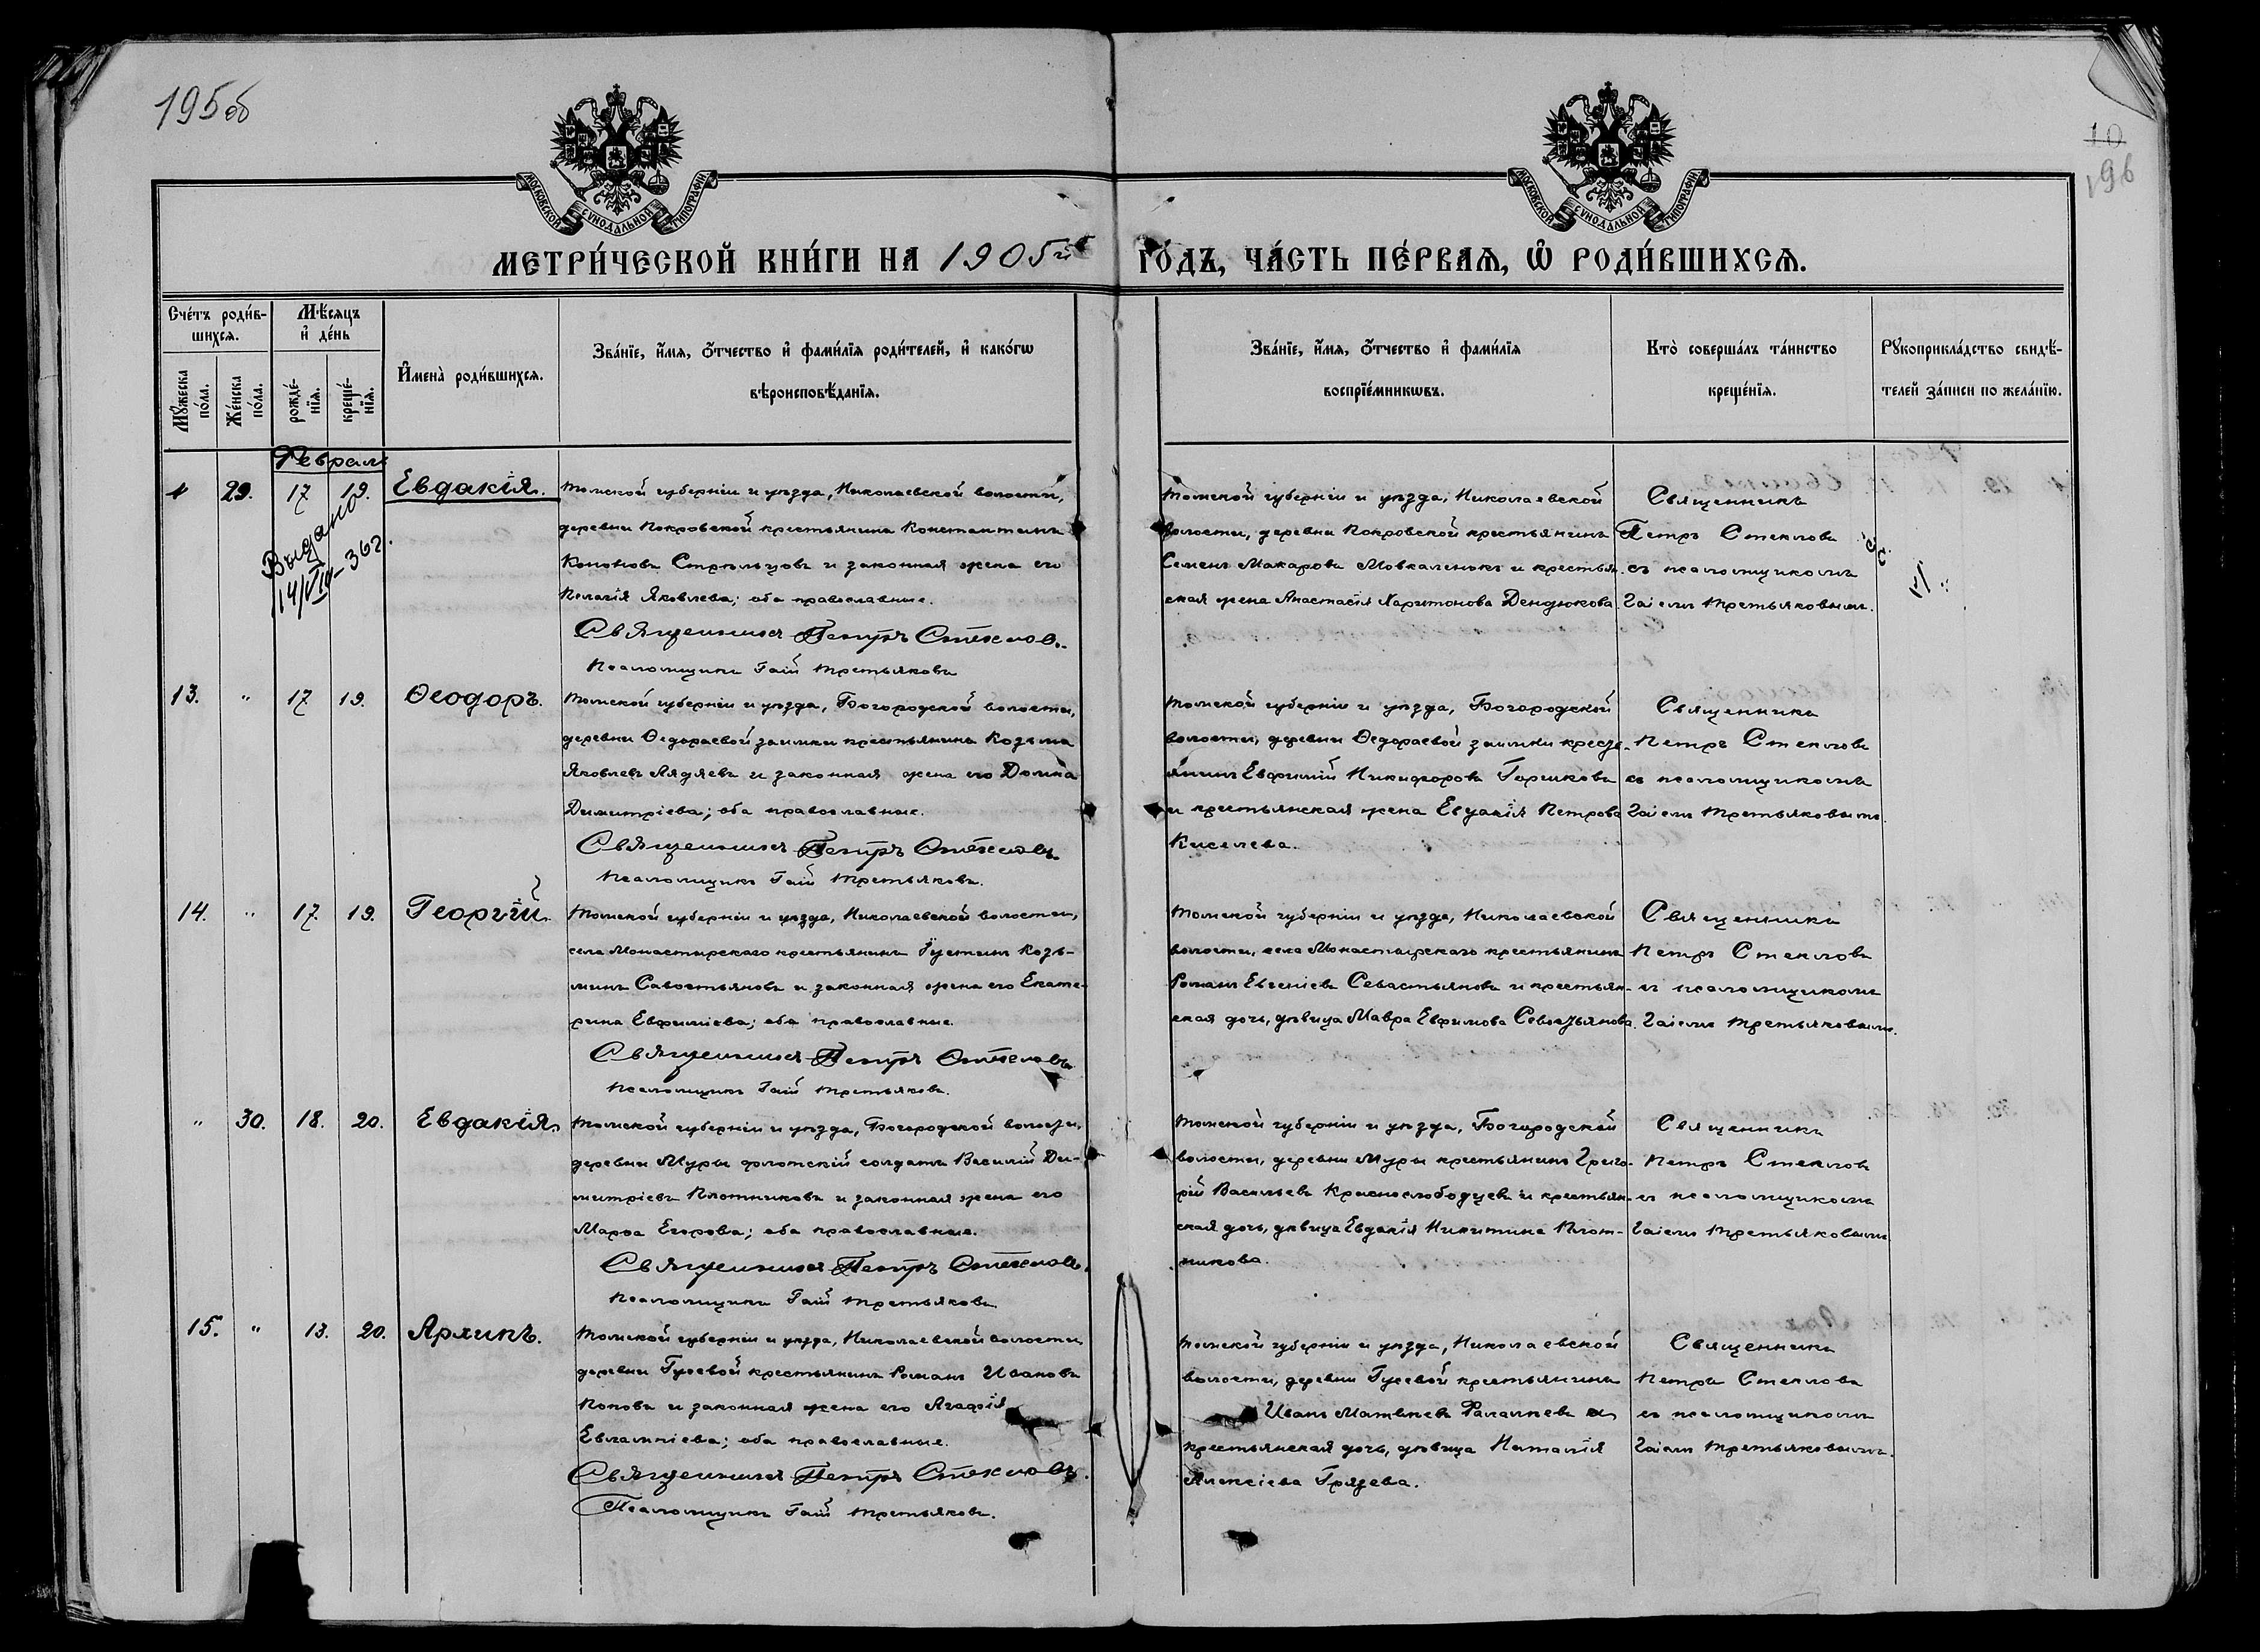 195об
10
196
МОСКОВСКОЙ СѴНОДАЛЬНОЙ ТИПОГРАФІИ
МОСКОВСКОЙ СѴНОДАЛЬНОЙ ТИПОГРАФІИ
МЕТРИ́ЧЕСКОЙ КНИ́ГИ НА 1905й
ГО́ДЪ, ЧА́СТЬ ПЕ́РВАѦ, Ѽ РОДИ́ВШИХСѦ.
Сче́тъ роди́в-
шихся.
Мѣ́сяцъ
и҆ де́нь
Мꙋ́жеска
по́ла.
Же́нска
по́ла.
рожде́-
нїя.
креще́-
нїя.
И҆мена̀ роди́вшихся.
Зва́нїе, и҆́мя, ѻ҆́тчество и҆ фами́лїя роди́телей, и҆ како́гѡ
вѣроисповѣ́данїя.
Зва́нїе, и҆́мя, ѻ҆́тчество и҆ фами́лїя
воспрїе́мникѡвъ.
Кто̀ соверша́лъ та́инство
креще́нїя.
Рꙋкоприкла́дство свидѣ́-
телей за́писи по жела́нїю.
Февраль
29. 17 19. Евдакія.
Выдано
14/VIII - 362.
Томской губерніи и уѣзда, Николаевской волости,
деревни Покровской крестьянинъ Константинъ
Кононовъ Стрѣльцовъ и законная жена его
Пелагія Яковлева; оба православные.
Священникъ Петръ Стекловъ.
Псаломщикъ Гаій Третьяковъ
Томской губерніи и уѣзда, Николаевской
волости, деревни Покровской крестьянинъ
Семенъ Макаровъ Мовкаленокъ и крестьян-
ская жена Анастасія Харитонова Дендюкова.
Священникъ
Петръ Стекловъ
съ псаломщикомъ
Гаіемъ Третьяковымъ.
13. " 17 19. Ѳеодоръ.
Томской губерніи и уѣзда, Богородской волости,
деревни Ѳедораевой заимки крестьянинъ Козьма
Яковлевъ Лядяевъ и законная жена его Домна
Димитріева; оба православные.
Священникъ Петръ Стекловъ.
Псаломщикъ Гаій Третьяковъ.
Томской губерніи и уѣзда, Богородской
волости, деревни Ѳедораевой заимки кресть-
янинъ Евфимій Никифоровъ Горшковъ
и крестьянская жена Евдакія Петрова
Киселева.
Священникъ
Петръ Стекловъ
съ псаломщикомъ
Гаіемъ Третьяковымъ.
14. " 17. 19. Георгій.
Томской губерніи и уѣзда, Николаевской волости,
села Монастырскаго крестьянинъ Іустинъ Козь-
минъ Савостьяновъ и законная жена его Екате-
рина Евфиміева; оба православные.
Священникъ Петръ Стекловъ
Псаломщикъ Гаій Третьяковъ.
Томской губерніи и уѣзда, Николаевской
волости, села Монастырскаго крестьянинъ
Романъ Евгеніевъ Севастьяновъ и крестьян-
ская дочь, дѣвица Мавра Евфимова Севостьянова.
Священникъ
Петръ Стекловъ
съ псаломщикомъ
Гаіемъ Третьяковымъ.
" 30. 18. 20. Евдакія.
Томской губерніи и уѣзда, Богородской волости,
деревни Муры флотскій солдатъ Василій Ди-
митріевъ Плотниковъ и законная жена его
Марѳа Егорова; оба православные.
Священникъ Петръ Стекловъ.
Псаломщикъ Гаій Третьяковъ
Томской губерніи и уѣзда, Богородской
волости, деревни Муры крестьянинъ Григо-
рій Васильевъ Краснослободцевъ и крестьян-
ская дочь, дѣвица Евдакія Никитина Плот-
никова.
Священникъ
Петръ Стекловъ
съ псаломщикомъ
Гаіемъ Третьяковымъ
15. " 13. 20. Архипъ.
Томской губерніи и уѣзда, Николаевской волости
деревни Гусевой крестьянинъ Романъ Ивановъ
Поповъ и законная жена его Агафія
Евлампіева; оба православные.
Священникъ Петръ Стекловъ.
Псаломщикъ Гаій Третьяковъ.
Томской губерніи и уѣзда, Николаевской
волости, деревни Гусевой крестьянинъ
Иванъ Матвѣевъ и
крестьянская дочь, дѣвица Наталія
Алексіева Грязева.
Священникъ
Петръ Стекловъ
съ псаломщикомъ
Гаіемъ Третьяковымъ.